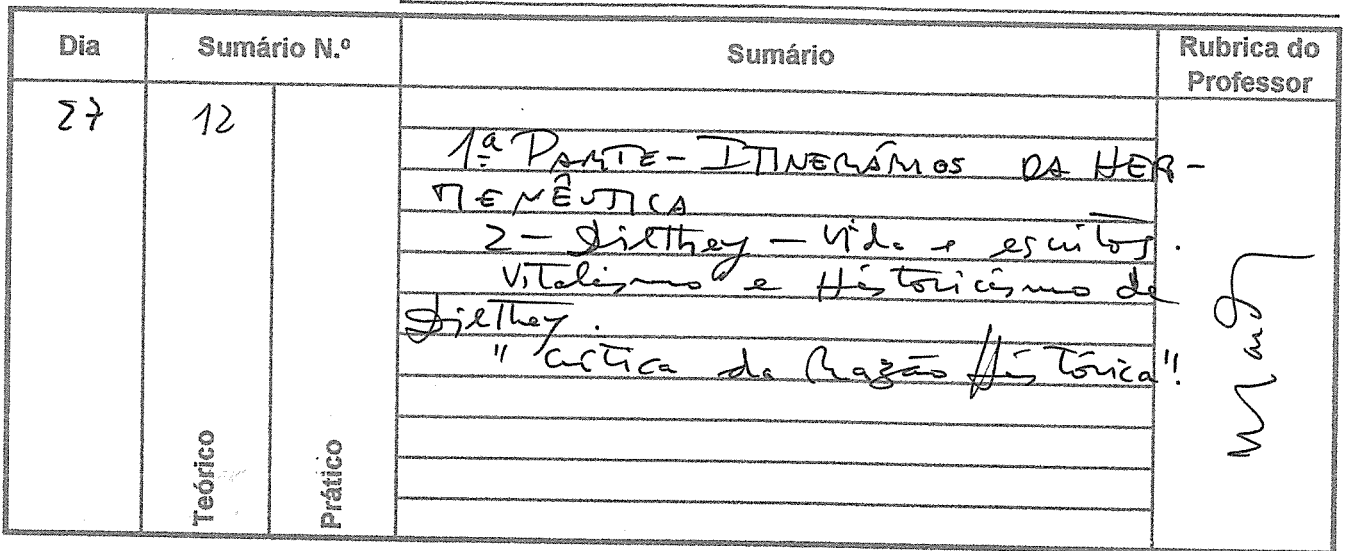 Dia
Sumário N.º
Sumário
Rubrica do
Professor
27
12
1ª PARTE - ITINERÁRIOS DA HER-
MENÊUTICA
2 - Dilthey - Vida e escritos.
Vitalismo e Historicismo de
Dilthey.
"Crítica da Razão Histórica".
Teórico
Prático